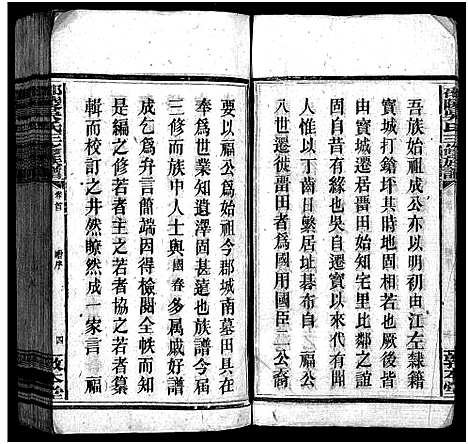 吾族始祖成公亦以明初由江左隸籍
寳城打鎗坪其時地固相若也厥後皆
由寳城遷居晋田始知宅里比鄰之誼
固自昔有緣也吳自遷寳以來代有聞
人惟以丁口日繁居址碁布自 福公
八世遷徙晋田者爲國用國臣二公裔
要以福公爲始祖今郡城南墓田具在
奉爲世業知遺澤固甚遠也族譜今屆
三修而族中人士與國春多属戚好譜
成乞爲弁言簡端因得檢閱全帙而知
是編之修若者主之若者協之若者纂
輯而校訂之井然瞭然成一家言 福
卷首
附序
四
敦本堂